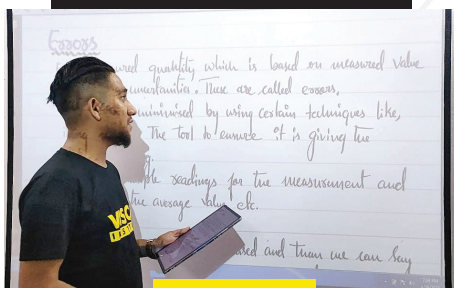 Errors
ured quantity which is based on measured value
uncertainities. These are called errors.
minimised by using certain techniques like,
The tool to ensure it is giving the
ple readings for the measurement and
the average value etc.
used and then we can say